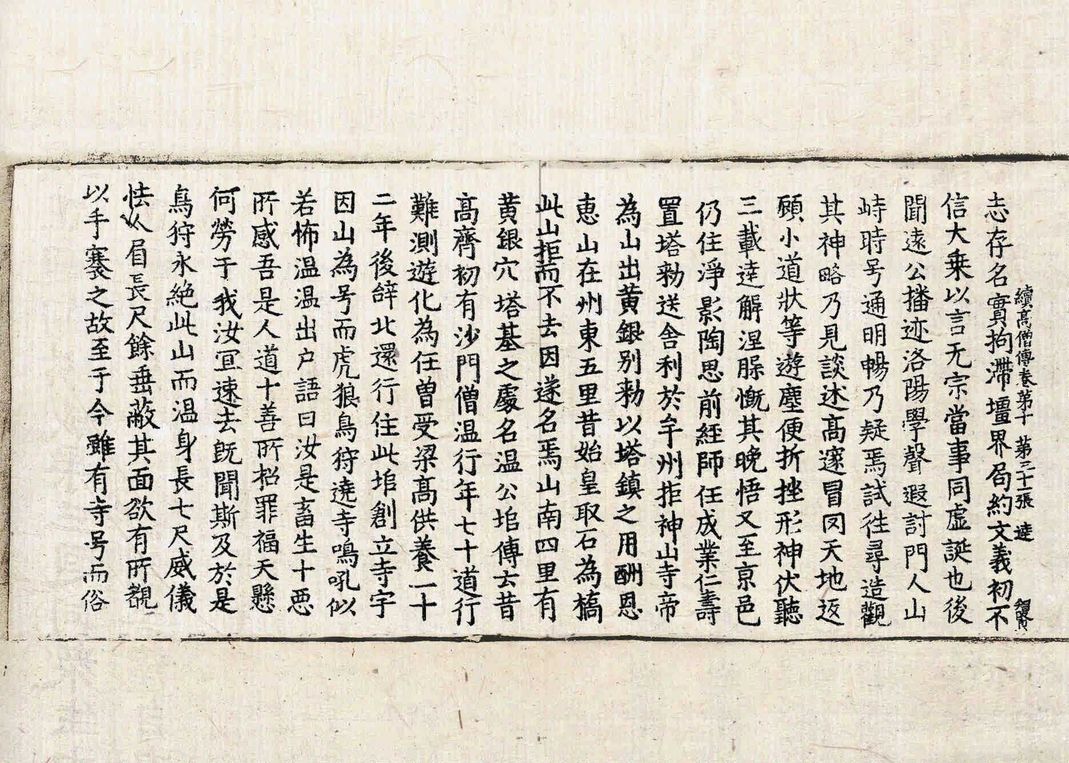 續高僧傳卷第十 第三十二張 達
志存名實拘滯壇界局約文義初不
信大乗以言无宗當事同虛誕也後
聞遠公播迹洛陽學聲遐討門人山
峙時号通明暢乃疑焉試往尋造觀
其神略乃見談述高邃冒罔天地返
顧小道狀等遊塵便折挫形神伏聽
三載達解涅脲慨其晚悟又至京邑
仍住淨影陶思前經師任成業仁壽
置塔勑送舍利於牟州拒神山寺帝
為山出黃銀别勑以塔鎮之用酬恩
惠山在州東五里昔始皇取石為橋
此山拒而不去因遂名焉山南四里有
黃銀穴塔基之處名温公埳傳云昔
高齊初有沙門僧温行年七十道行
難測遊化為任曽受梁高供養一十
二年後辝北還行住此埳創立寺宇
因山為号而虎狼鳥狩遶寺鳴吼似
若怖温温出户語曰汝是畜生十惡
所感吾是人道十善所招罪福天懸
何勞于我汝宜速去既聞斯及於是
鳥狩永絶此山而温身長七尺威儀
恠人眉長尺餘垂蔽其面欲有所覩
以手褰之故至于今雖有寺号而俗